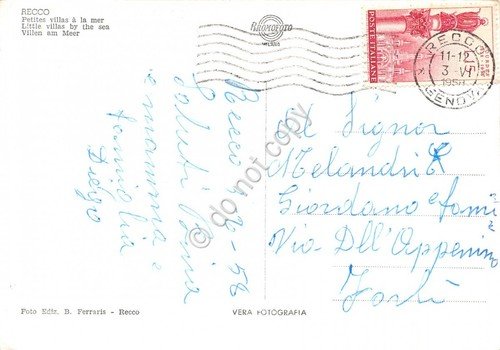 RECCO
Petites villas à la mer
Little villas by the sea
Villen am Meer
BROMOFOTO
MILANO
POSTE ITALIANE
RECCO
11-12
3 VI
GENOVA
Al Signor
Melandri
Giordano e fami
Via Dell'Appenino
Forlì
Recco 2-6-58
Saluti
mamma e
famiglia
Diego
do not copy
Foto Ediz. B. Ferraris - Recco
VERA FOTOGRAFIA